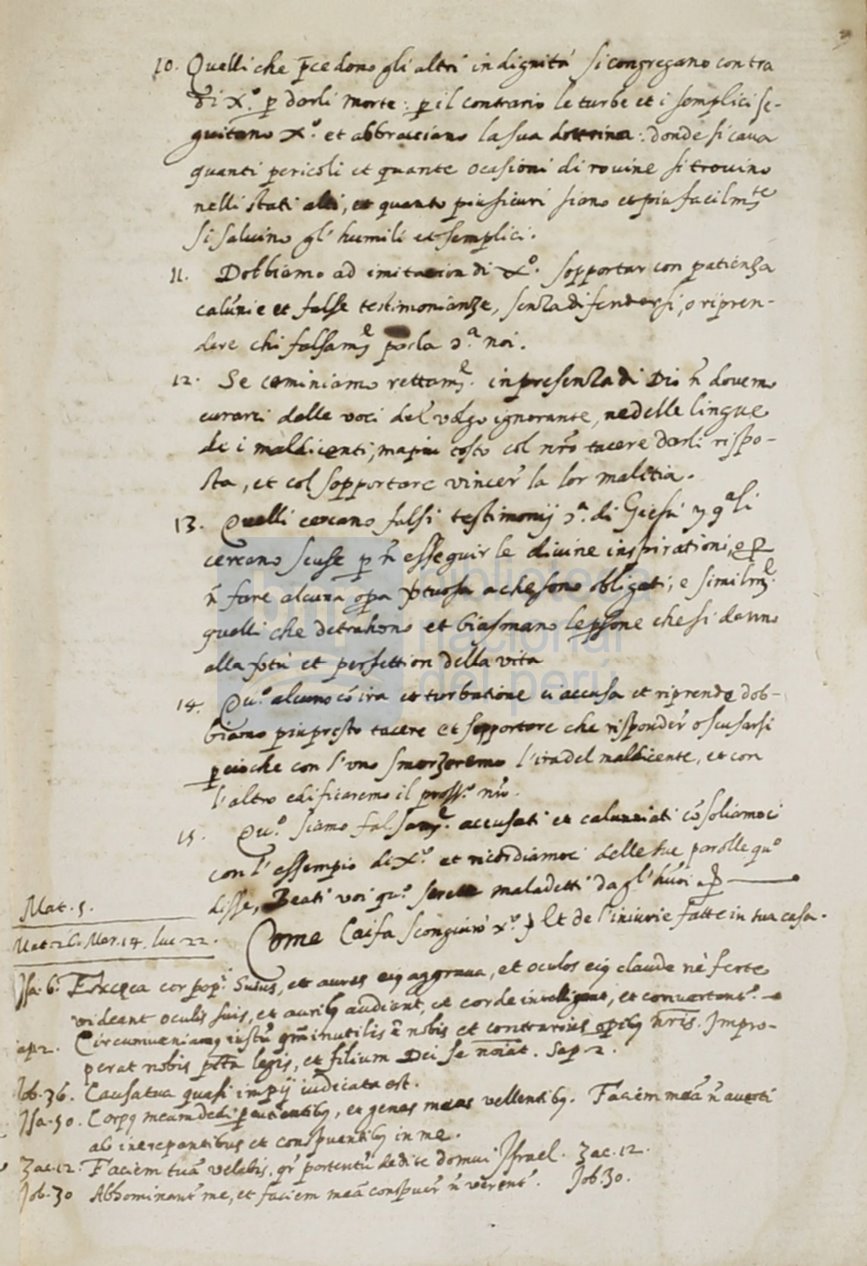 10. Quelli che p̄cedono gli altri in dignità si congregano contra
di X.º p̱ darli morte: p̱ il contrario le turbe et i semplici se-
guitano X.º et abbracciano la sua dottrina: donde si cava
quanti pericoli et quante ocasioni di rovine si trovino
nelli stati alti, et quanto piu sicuri siano et piu facilm.te
si salvino gl' humili et semplici.
11. Dobbiamo ad imitacion di X.º sopportar con patienza
calūnie et false testimonianze, senza difendersi, o ripren-
dere chi falsam.e parla ɔ.a noi.
12. Se caminiamo rettam.e in presenza di Dio ñ dovemo
curarci delle voci del volgo ignorante, ne delle lingue
de i maldicenti, ma piu tosto col nr̃o tacere darli rispo-
sta, et col sopportare vincer la lor malitia.
13. Quelli cercano falsi testimonij ɔ.a di Giesù
cercano scuse p̱ ñ esseguir le divine inspirationi, e p̱
ñ fare alcuna opa a che sono obligati; e similm.e
quelli che detrahono et biasmano le p̱sone che si danno
alla et perfettion della vita
14. Qu.º alcuno cō ira et turbatione ci accusa et riprende dob-
biamo piu presto tacere et sopportare che risponder o scusarsi
p̱cioche con l'uno smorzaremo l'ira del maldicente, et con
l'altro edificaremo il pross.º nr̃o.
15. Qu.º siamo falsam.e accusati et calunniati cō soliamoci
con l'essempio di X.º et ricordiamoci delle sue parolle qu.º
disse, Beati voi qu.º sarete maladetti da gl' huoī
Mat. 5.
Mat. 26. Mar. 14. Luc. 22.
Come Caifa scongiurò X.º, Et de l'iniurie fatte in sua casa.
Isa. 6. Excęca cor popi' huius, et aures eiꝰ aggrava, et oculos eiꝰ claude nè forte
videant oculis suis, et auribꝰ audiant, et corde intelligant, et convertant.r
Sap. 2. Circumveniamꝰ iustū qm̄ inutilis ē nobis et contrarius opibꝰ nr̄is. Impro-
perat nobis pc̄ta legis, et filium Dei se noīat. Sap. 2.
Iob. 36. Causa tua quasi impij iudicata est.
Isa. 50. Corpꝰ meum dedi p̱cutientibꝰ, et genas meas vellentibꝰ. Faciem meā ñ averti
ab increpantibus et conspuentibꝰ in me.
Zac. 12. Faciem tuā velabis, qr̄ portentū dedi te domui Israel. Zac. 12.
Iob. 30 Abhominant.r me, et faciem meā conspuer ñ verent.r Iob. 30.
biblioteca
nacional
del perú